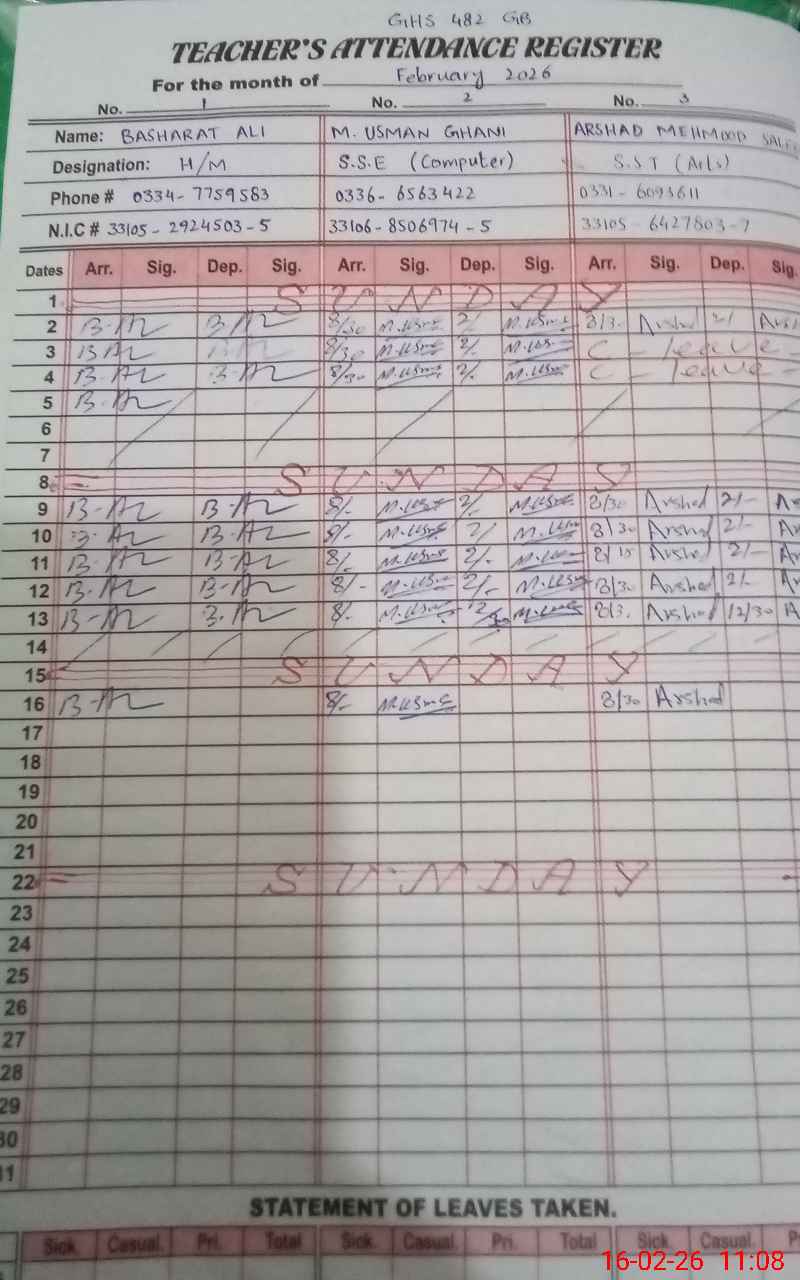 GHS 482 GB
TEACHER'S ATTENDANCE REGISTER
For the month of February 2026
No. 1 No. 2 No. 3
Name: BASHARAT ALI M. USMAN GHANI ARSHAD MEHMOOD
Designation: H/M S.S.E (Computer) S.S.T (Arts)
Phone # 0334-7759583 0336-6563422 0331-6093611
N.I.C # 33105-2924503-5 33106-8506974-5 33105-6427803-7
Dates Arr. Sig. Dep. Sig. Arr. Sig. Dep. Sig. Arr. Sig. Dep. Sig.
1 SUNDAY
2 8/30 2/ Arshad 2/-
3 8/30 2/ C - leave -
4 8/30 2/ C - leave -
5
6
7
8 SUNDAY
9 8/- 2/- 8/30 Arshad 2/-
10 8/- 2/ 8/30 Arshad 2/-
11 8/- 2/- Arshad 2/-
12 8/- 2/- 8/30 Arshad 2/-
13 8/- Arshad 12/30
14
15 SUNDAY
16 8/- 8/30 Arshad
17
18
19
20
21
22 SUNDAY
23
24
25
26
27
28
29
30
31
STATEMENT OF LEAVES TAKEN.
Sick. Casual. Pri. Total Sick. Casual. Pri. Total Sick. Casual.
16-02-26 11:08